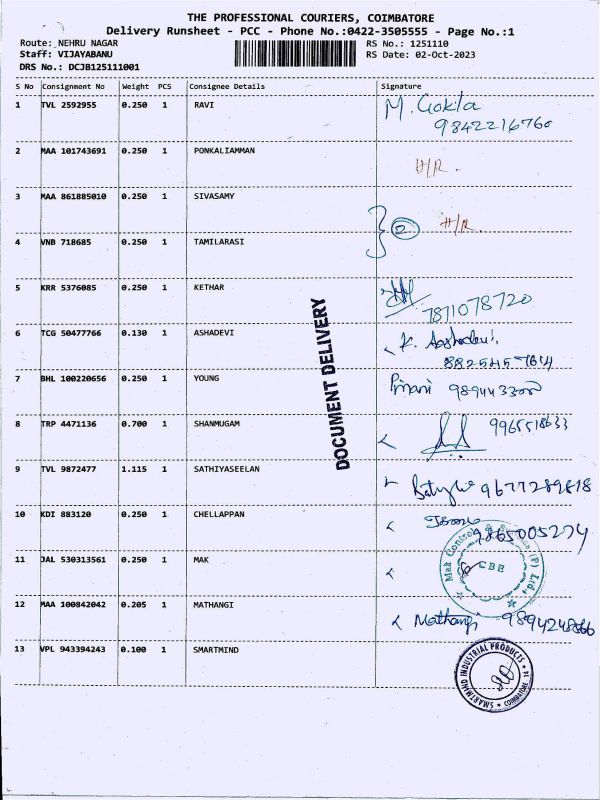 THE PROFESSIONAL COURIERS, COIMBATORE
Delivery Runsheet - PCC - Phone No.:0422-3505555 - Page No.:1
Route: NEHRU NAGAR RS No.: 1251110
Staff: VIJAYABANU RS Date: 02-Oct-2023
DRS No.: DCJB125111001
S No Consignment No Weight PCS Consignee Details Signature
1 TVL 2592955 0.250 1 RAVI M. Gokla
9842216760
2 MAA 101743691 0.250 1 PONKALIAMMAN H/R.
3 MAA 861885010 0.250 1 SIVASAMY
2 H/R.
4 VNB 718685 0.250 1 TAMILARASI
5 KRR 5376085 0.250 1 KETHAR
7871078720
6 TCG 50477766 0.130 1 ASHADEVI K.
7 BHL 100220656 0.250 1 YOUNG
8 TRP 4471136 0.700 1 SHANMUGAM 9965518633
9 TVL 9872477 1.115 1 SATHIYASEELAN 9677289818
10 KDI 883120 0.250 1 CHELLAPPAN 9865005274
11 JAL 530313561 0.250 1 MAK
Mak Controls & (P) Ltd.
CBE
12 MAA 100842042 0.205 1 MATHANGI Mathangi
13 VPL 943394243 0.100 1 SMARTMIND
SMARTMIND INDUSTRIAL PRODUCTS
COIMBATORE
DOCUMENT DELIVERY